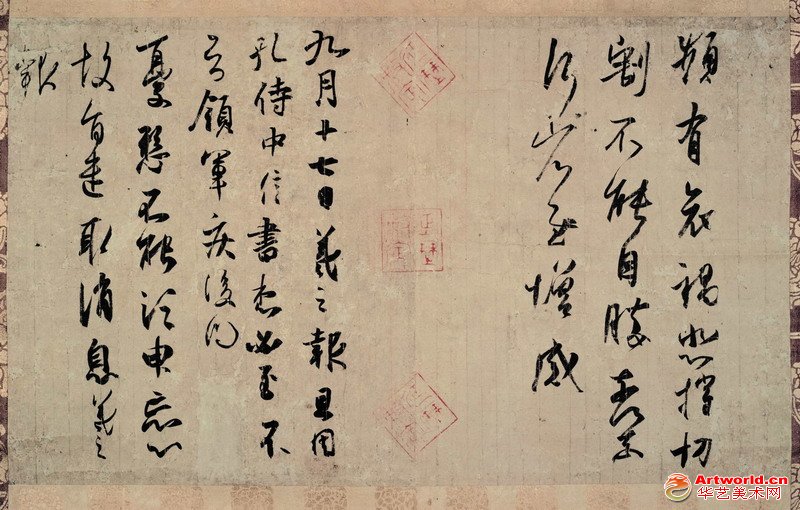 頻有哀禍悲摧切
割不能自勝奈何奈
何省慰增感
九月十七日羲之報且因
孔侍中信書想必至不
知領軍疾後問
憂懸不能須臾忘心
故旨遣取消息羲之
報
Artworld.cn
华艺美术网